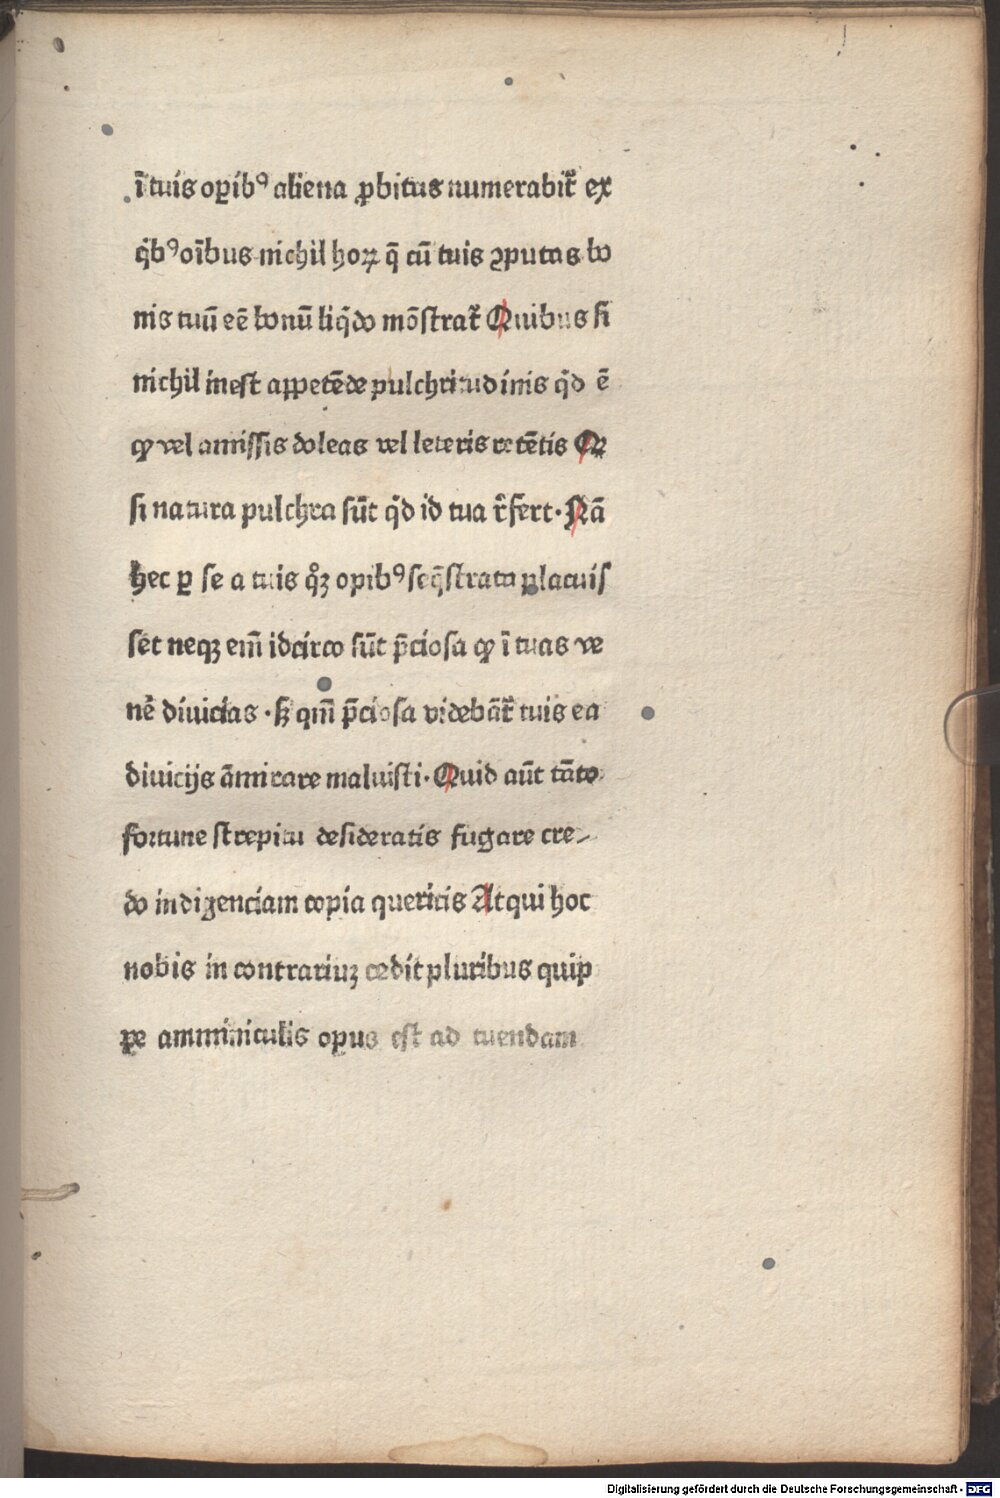 ī tuis opibꝰ aliena ꝓbitas numerabit᷑ ex
q̇bꝰ oībus nichil hoꝝ q̄ cū tuis ꝯputas bo
nis tuū eē bonū liq̇do mōstrat᷑ Quibus si
nichil inest appetēde pulchritudinis q̇d ē
ꝙ vel amissis doleas vel leteris retētis Q
si natura pulchra sūt q̇d id tua r̄fert· Nā
hec ꝑ se a tuis qͦꝫ opibꝰ seq̄strata placuis
sēt neqꝫ em̄ idcirco sūt p̄ciosa ꝙ ī tuas ve
nē divicias · sꝫ qm̄ p̄ciosa videbāt᷑ tuis ea
divicijs ānnirare maluisti· Quid aūt tāto
fortune strepitu desideratis fugare cre-
do indigenciam copia queritis Atqui hoc
nobis in contrariuꝫ cedit pluribus quip
pe amminiculis opus est ad tuendam
Digitalisierung gefördert durch die Deutsche Forschungsgemeinschaft · DFG